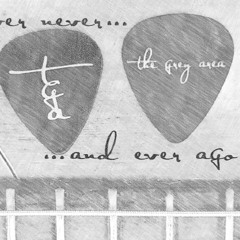 ver never...
tga
the grey area
...and ever ago